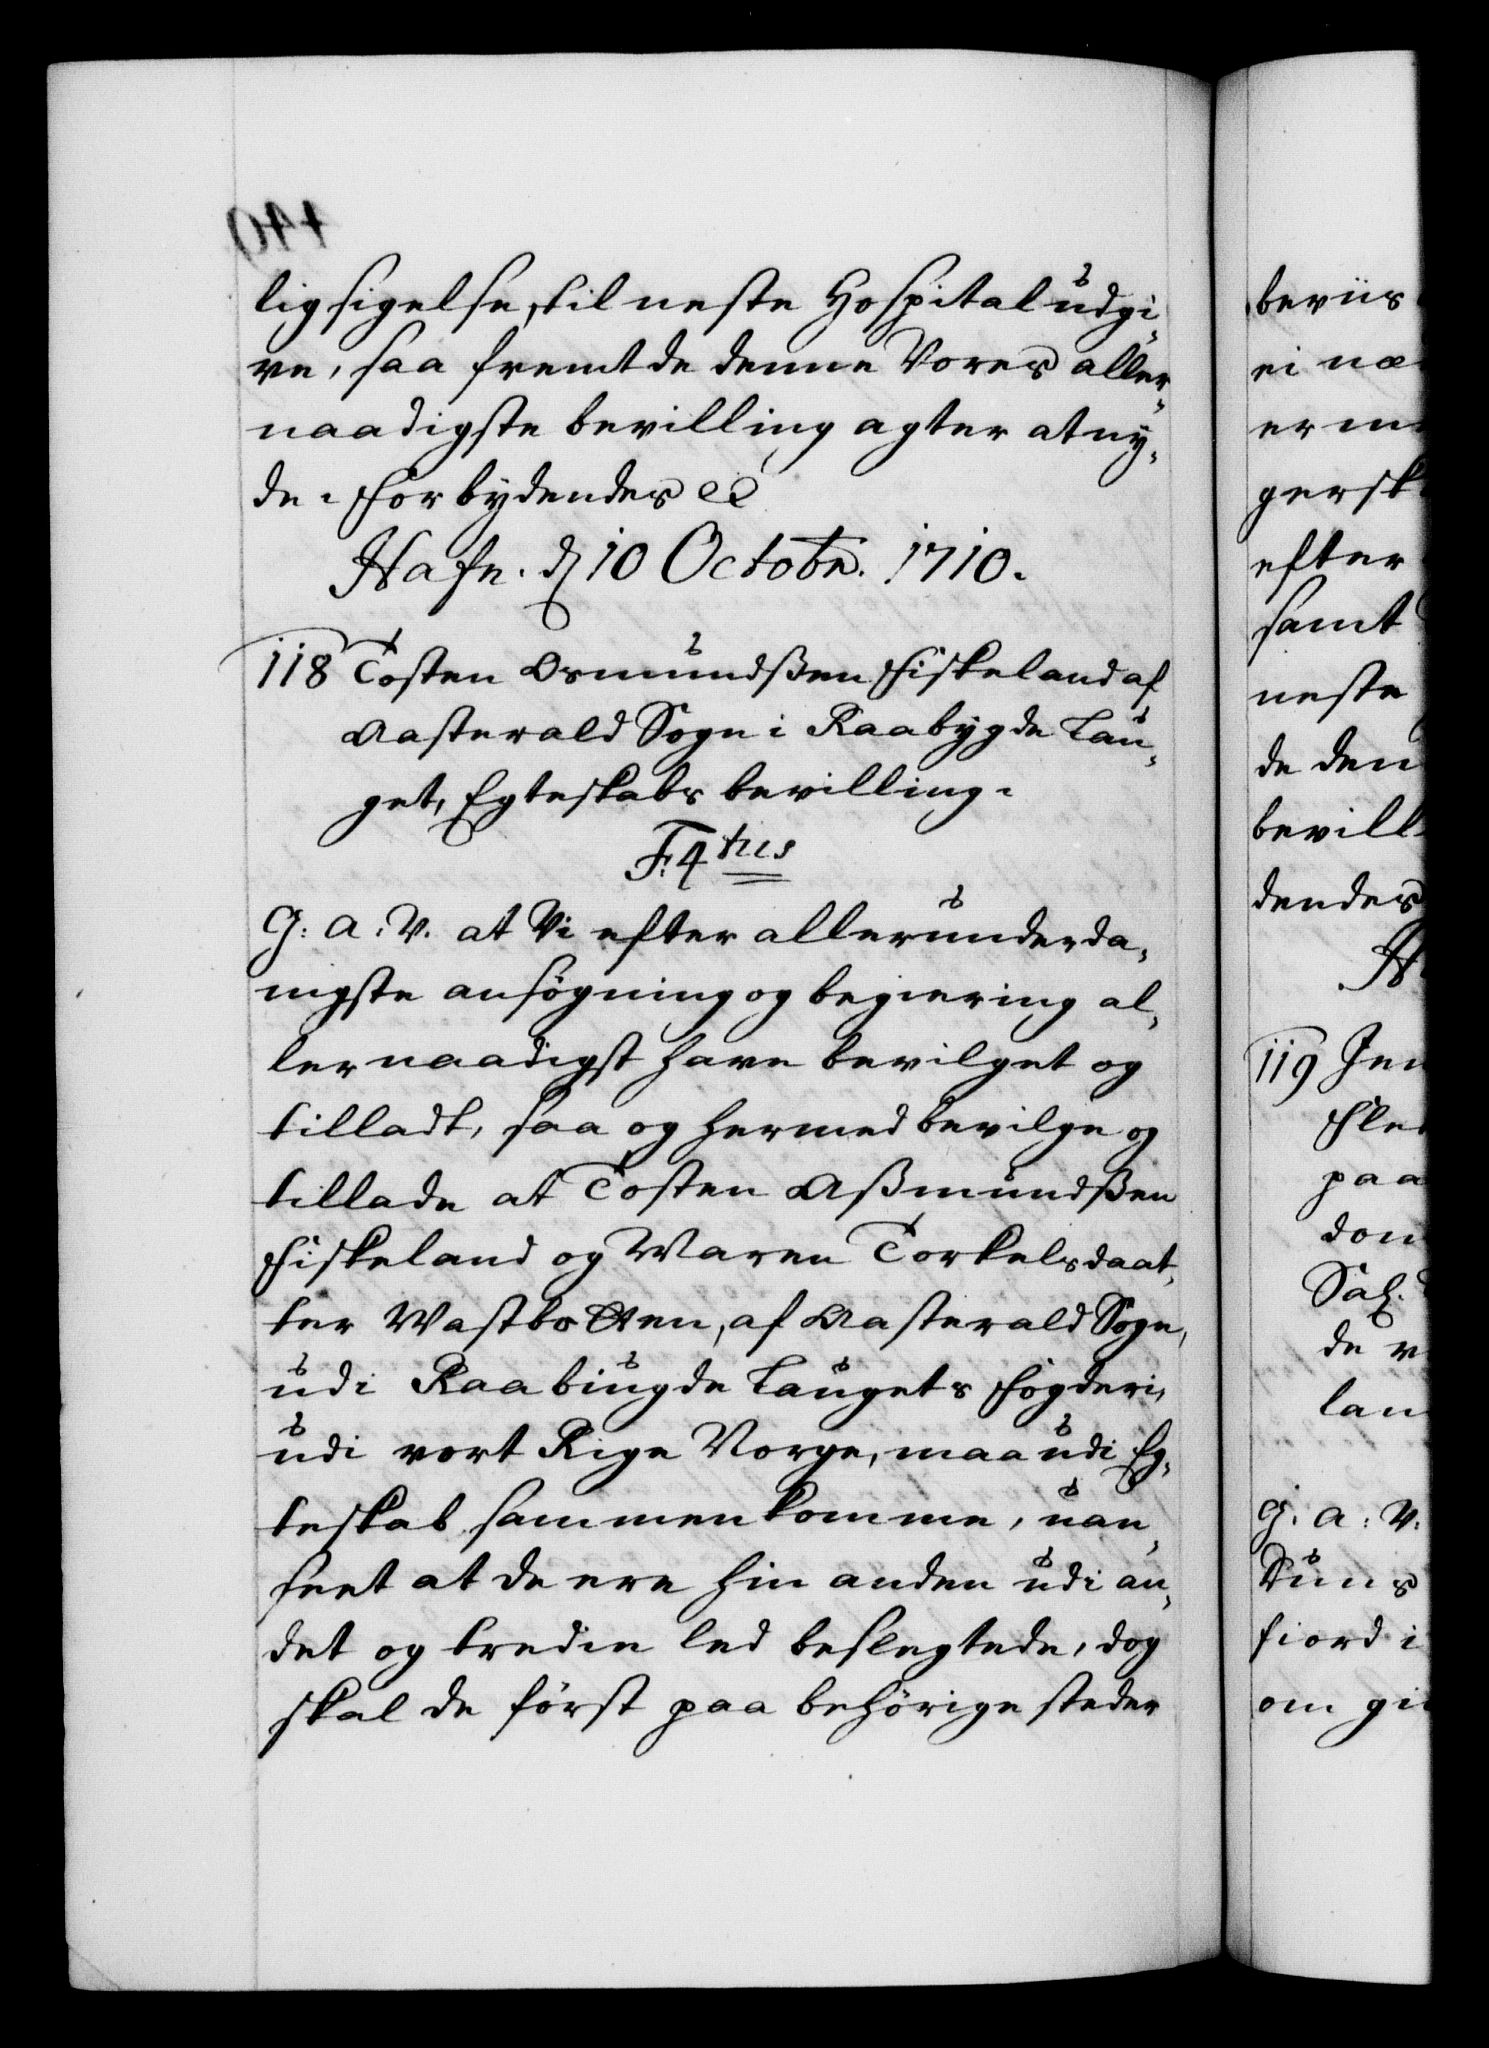 lig sigelse, til neste Hospital udgi,
ve, saa fremt de denne Vores aller,
naadigste bevilling agter at ny,
de. Forbydendes
Hafn. d 10 Octobr. 1710.
118 Tosten Osmundßen Fiskeland af
Aasterald Sogn i Raabygde Lau,
get, Egteskabs bevilling.
F. 4tus
G: A: V. at Vi efter allerunderda,
nigste ansøgning og begiering al,
lernaadigst have bevilget og
tilladt, saa og hermed bevilge og
tillade at Tosten Aßmundßen
Fiskeland og Maren Torkelsdaat,
ter Wastbotten, af Aasterald Sogn,
udi Raabiugde Laugets Fogderi,
udi vort Rige Norge, maa udi Eg,
teskab sammenkomme, uan,
seet at de ere hin anden udi an,
det og tredie led beslegtede, dog
skal de först paa behörige steder
beviis
ei næ
er m
gersk
efter
samt
neste
de den
bevill
dendes
H
119 Jen
Fle
paa
dom
Sal.
de v
lan
G. A: V:
Sunds
fiord i
om gi